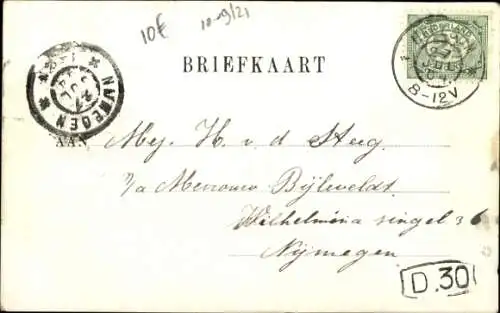 10€ 10-9/21
BRIEFKAART
NIJMEGEN
8-12V
AAN
Mej. H. v. d. Steeg
p/a Mevrouw Bijleveldt.
Wilhelmina singel 36
Nijmegen
D.30